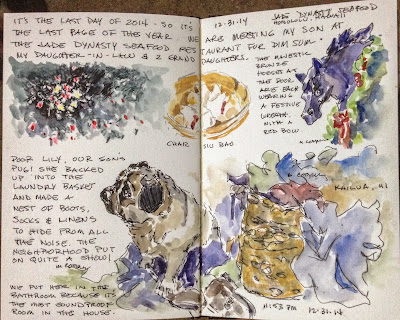 IT'S THE LAST DAY OF 2014 - SO IT'S
THE LAST PAGE OF THE YEAR. WE
ARE MEETING MY SON AT
THE JADE DYNASTY SEAFOOD RESTAURANT FOR DIM SUM -
MY DAUGHTER-IN-LAW & 2 GRAND DAUGHTERS.
12.31.14
JADE DYNASTY SEAFOOD
HONOLULU, HAWAII
THE MAJESTIC
BRONZE
HORSES AT
THE DOOR
ARE EACH
WEARING
A FESTIVE
WREATH,
WITH A
RED BOW.
CHAR SIU BAO
POOR LILY, OUR SONS
PUG! SHE BACKED
UP INTO THE
LAUNDRY BASKET
AND MADE A
NEST OF BOOTS,
SOCKS & LINENS
TO HIDE FROM ALL
THE NOISE. THE
NEIGHBORHOOD PUT
ON QUITE A SHOW!
WE PUT HER IN THE
BATHROOM BECAUSE ITS
THE MOST SOUNDPROOF
ROOM IN THE HOUSE.
KAILUA, HI
11:53 PM 12.31.14